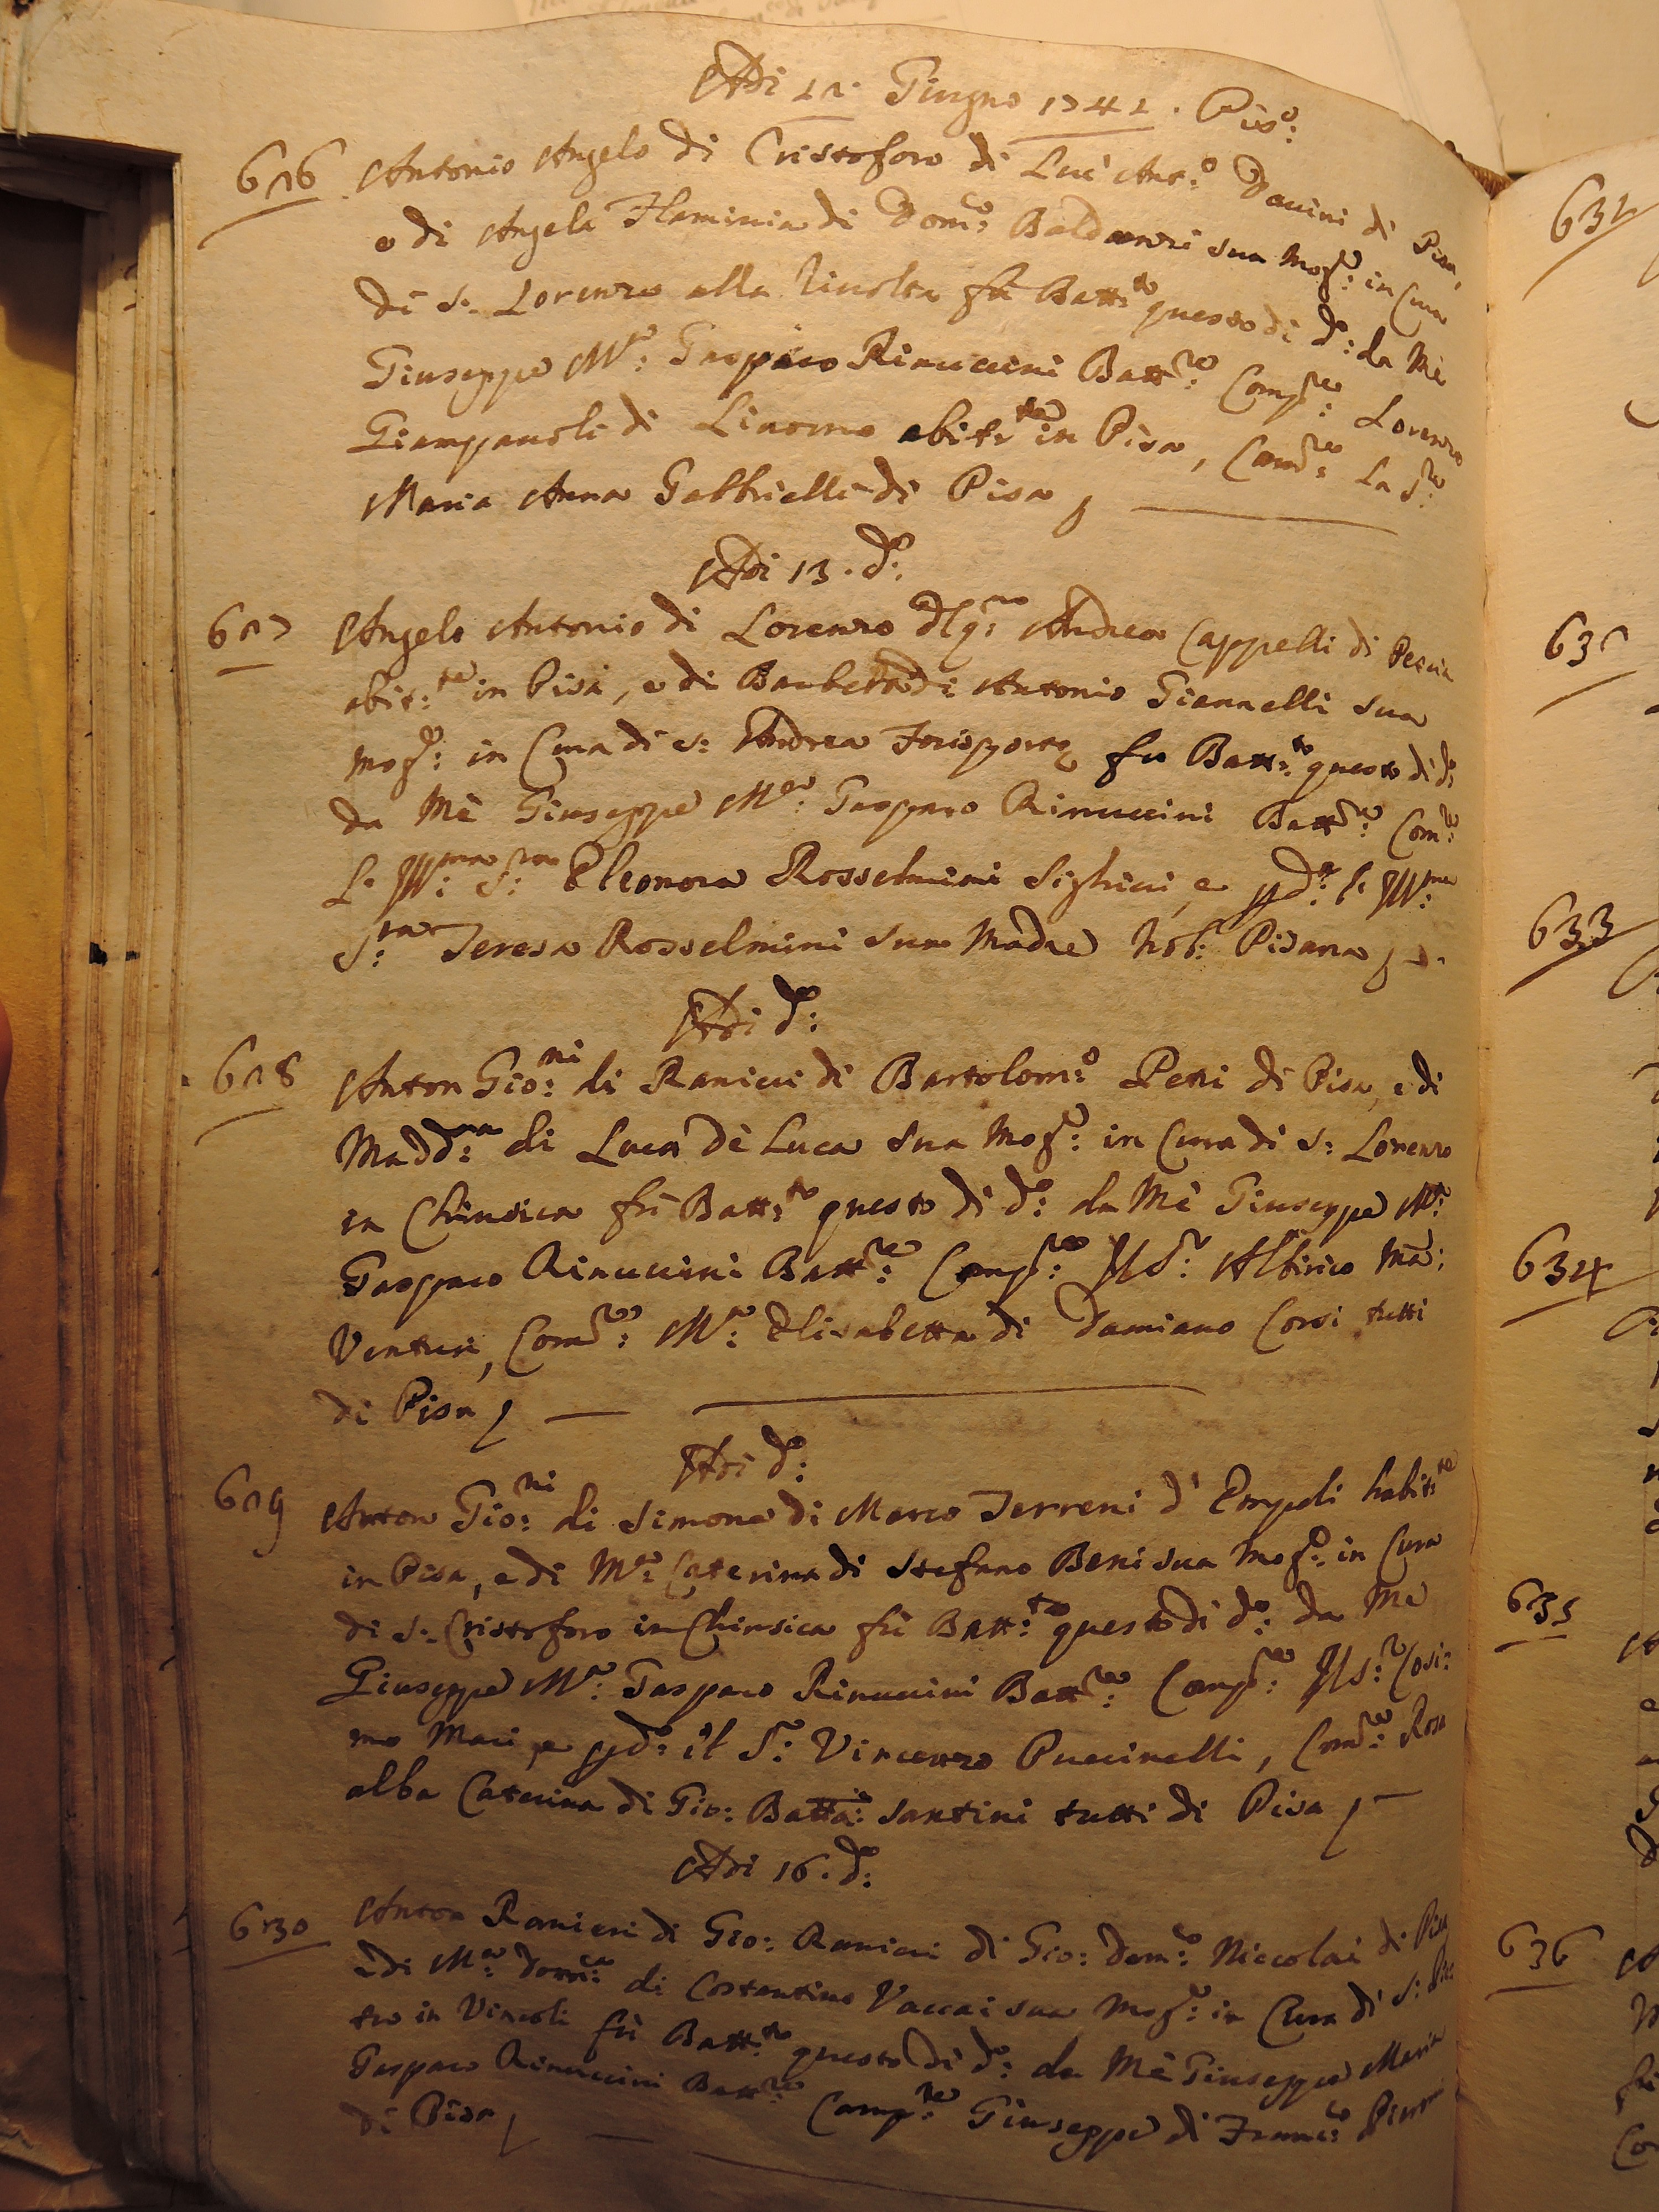 Adi 12. Giugno 1741. Pis.º:
626 Antonio Angelo di Cristoforo di Luc' Ant:º Danini di Pisa,
e di Angela Flaminia di Dom:co Baldanzi sua Mog:e in Cura
di S. Lorenzo alla Rivolta fù Batt:to questo dì d:o da Mè
Giuseppe M:a Gasparo Rinuccini Batt:re Comp:re Lorenzo
Giampauoli di Liuorno abit:te in Pisa, Com:re La S:ra
Maria Anna Gabbrielli di Pisa
Adi 13. d:o
627 Angelo Antonio di Lorenzo del q:m Andrea Cappelli di Pescia
abit:te in Pisa, e di Barbera di Antonio Giannelli sua
Mog:e in Cura di S: Andrea Forisporte fù Batt:to questo dì d:o
da Mè Giuseppe M:a Gasparo Rinuccini Batt:re Com:re
L' Ill:ma S:ra Eleonora Rosselmini Sighieri, e p d:a l' Ill:ma
S:ra Teresa Rosselmini sua Madre Nob: Pisana
Adi d:o
628 Anton Gio:ni di Ranieri di Bartolom:o Petri di Pisa, e di
Madd:na di Luca dè Luca sua Mog:e in Cura di S: Lorenzo
in Chinsica fù Batt:to questo dì d:o da Mè Giuseppe M:a
Gasparo Rinuccini Batt:re Comp:re Il S:r Albirico Ma:
Venturi, Com:re M:a Elisabetta di Damiano Corsi tutti
di Pisa
Adi d:o
629 Anton Gio:ni di Simone di Marco Terreni d' Empoli habit:te
in Pisa, e di M:a Caterina di Stefano Beni sua Mog:e in Cura
di S. Cristoforo in Chinsica fù Batt:to questo dì d:o da Me
Giuseppe M:a Gasparo Rinuccini Batt:re Comp:re Il S:r Cosi:
mo Maci, e p d:o il S:r Vincenzo Puccinelli, Com:re Rosa
alba Caterina di Gio: Batta: Santini tutti di Pisa
Adi 16. d:o
630 Anton Ranieri di Gio: Ranieri di Gio: Dom:co Niccolai di Pisa
e di M:a Dom:ca di Costantino Vaccai sua Mog:e in Cura di S: Pie:
tro in Vincoli fù Batt:to questo dì d:o da Mè Giuseppe Maria
Gasparo Rinuccini Batt:re Comp:re Giuseppe di Franc:o
di Pisa
631
632
633
634
635
636